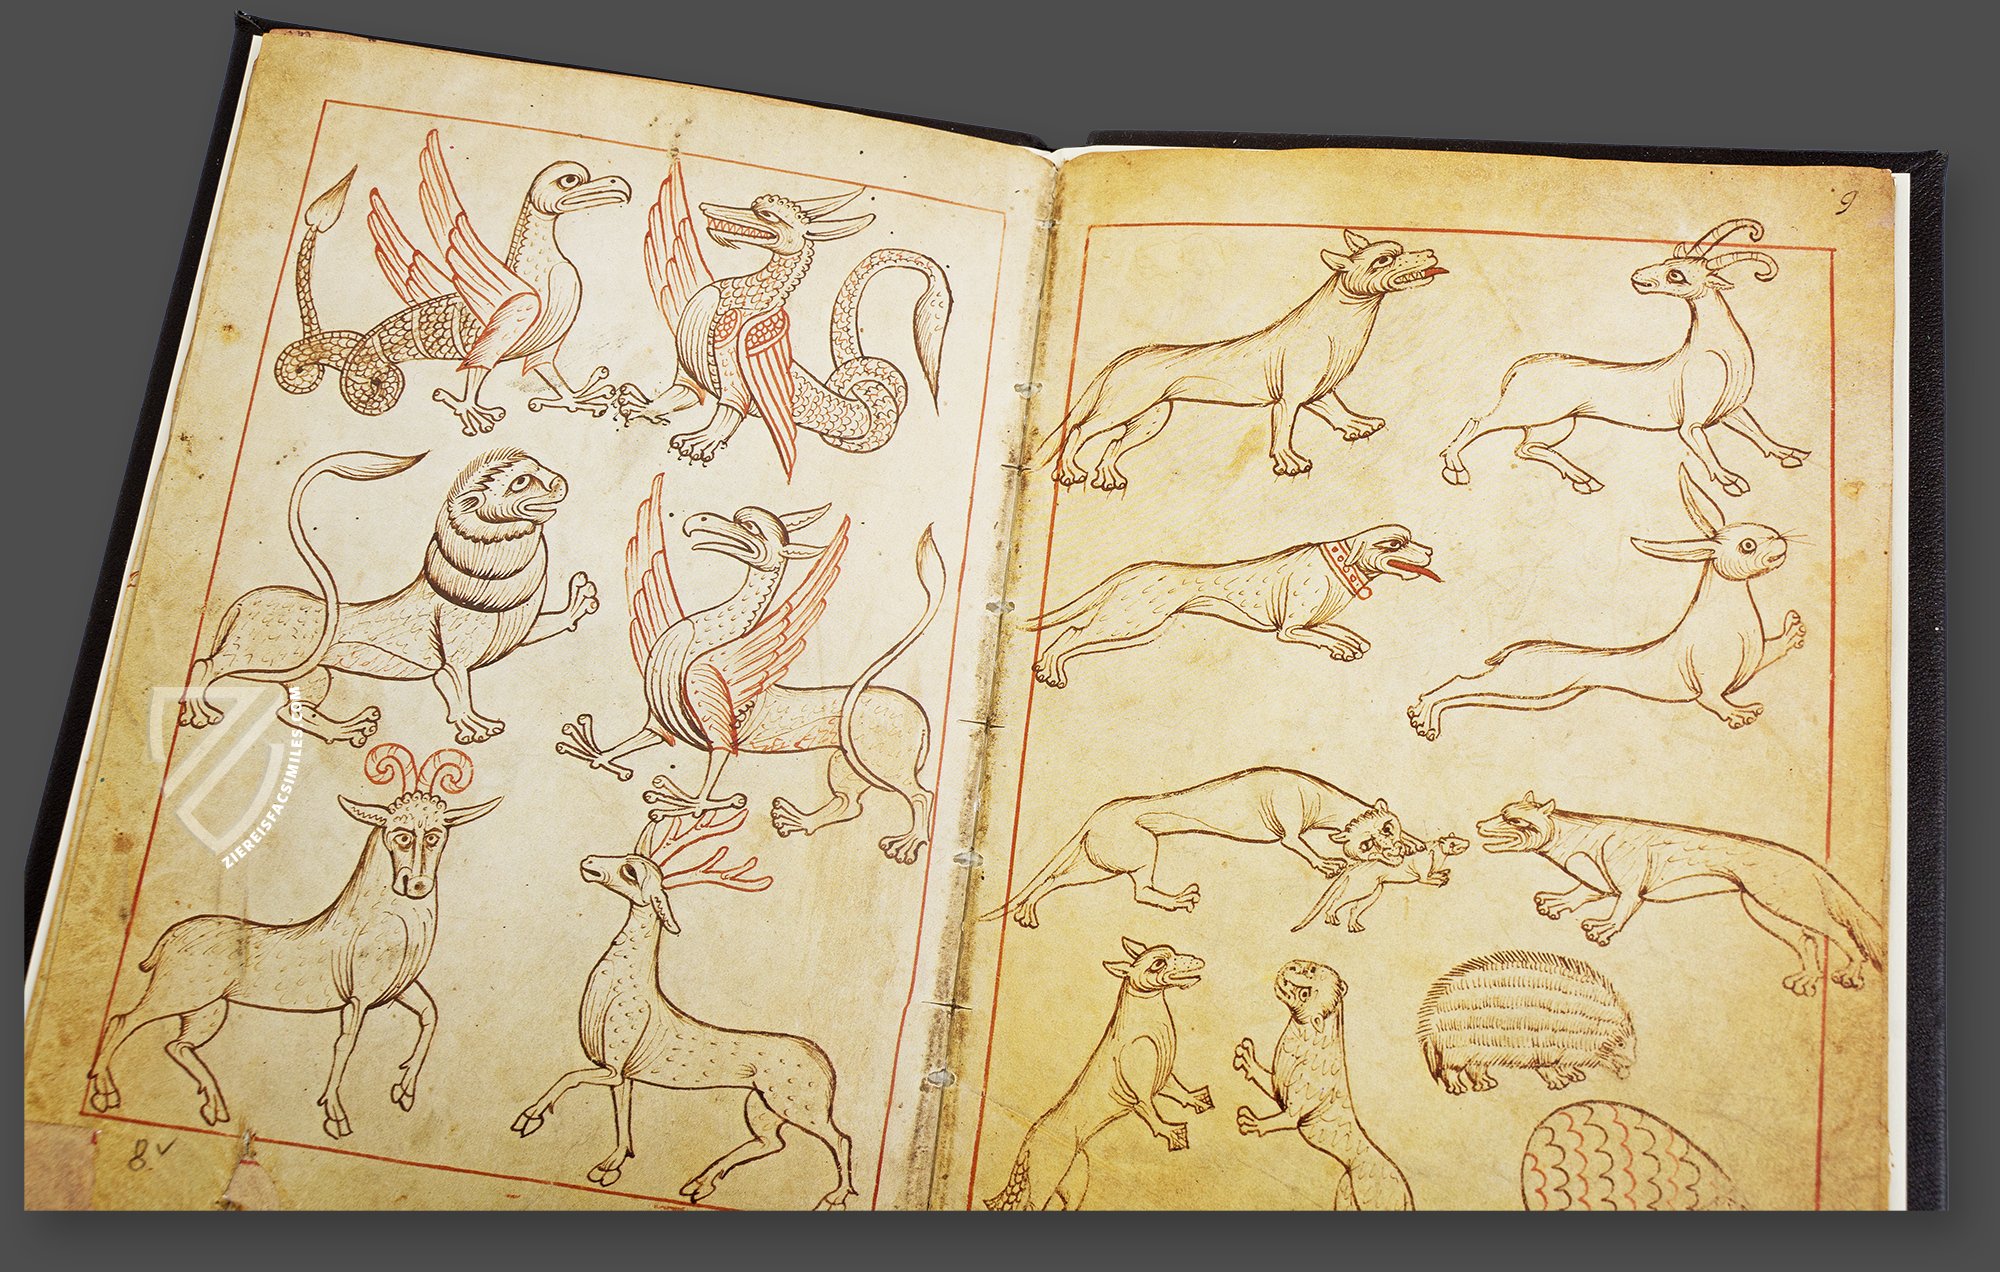 9
ZIEREISFACSIMILES.COM
8.v